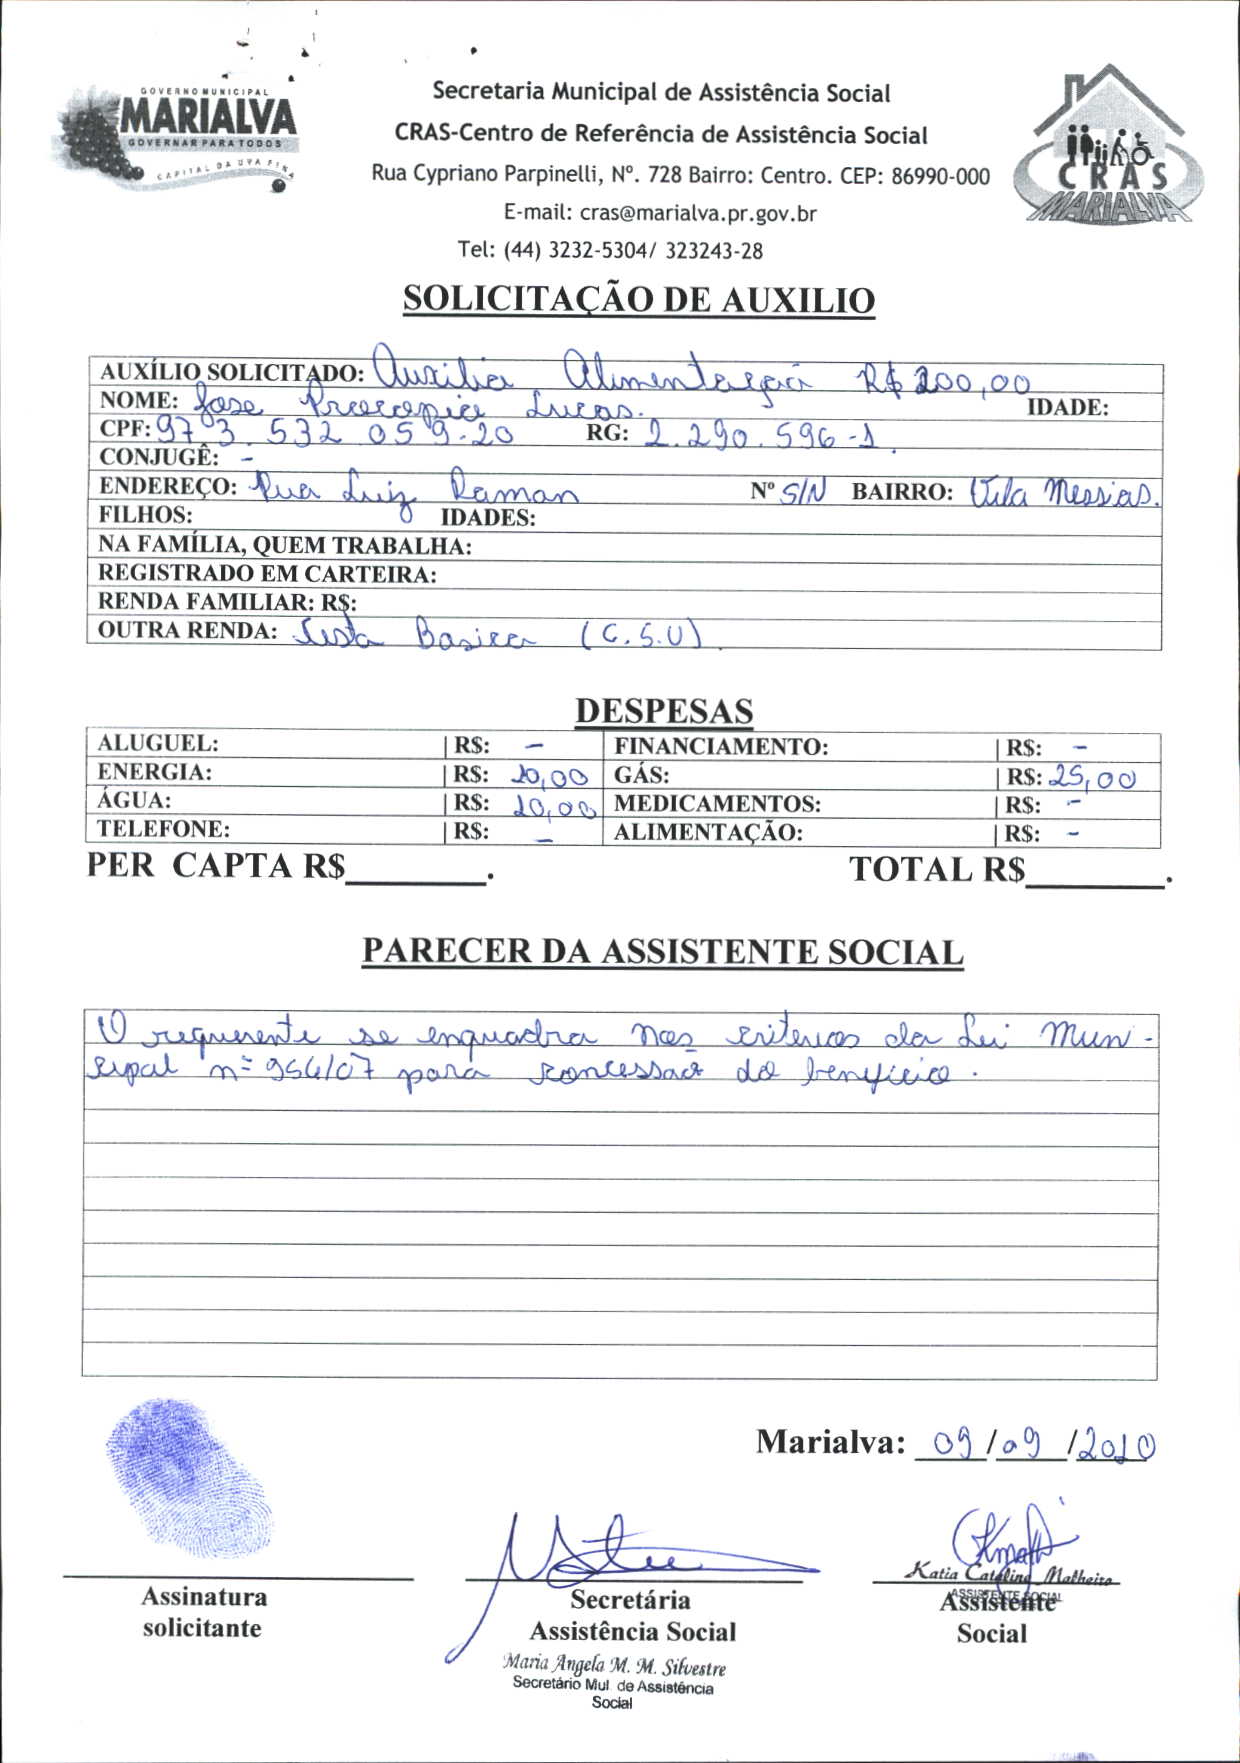 GOVERNO MUNICIPAL
MARIALVA
GOVERNAR PARA TODOS
CAPITAL DA UVA FINA
Secretaria Municipal de Assistência Social
CRAS-Centro de Referência de Assistência Social
Rua Cypriano Parpinelli, Nº. 728 Bairro: Centro. CEP: 86990-000
E-mail: cras@marialva.pr.gov.br
Tel: (44) 3232-5304/ 323243-28
CRAS
MARIALVA
SOLICITAÇÃO DE AUXILIO
AUXÍLIO SOLICITADO: Auxilio Alimentação R$ 200,00
NOME: Jose Procopio Lucas. IDADE:
CPF: 973.532 059-20 RG: 2.290.596-1
CONJUGÊ: -
ENDEREÇO: Rua Luiz Raman Nº S/N BAIRRO: Vila Messias.
FILHOS: IDADES:
NA FAMÍLIA, QUEM TRABALHA:
REGISTRADO EM CARTEIRA:
RENDA FAMILIAR: R$:
OUTRA RENDA: Cesta Basica (C.S.U)
DESPESAS
ALUGUEL: | R$: - FINANCIAMENTO: | R$: -
ENERGIA: | R$: 10,00 GÁS: | R$: 25,00
ÁGUA: | R$: 10,00 MEDICAMENTOS: | R$: -
TELEFONE: | R$: - ALIMENTAÇÃO: | R$: -
PER CAPTA R$________. TOTAL R$________.
PARECER DA ASSISTENTE SOCIAL
O requerente se enquadra nos criterios da Lei Mun-
cipal nº 956/07 para concessao do beneficio.
Marialva: 09/09/2010
Katia Cataline Malheiro
ASSISTENTE SOCIAL
Assinatura
solicitante
Secretária
Assistência Social
Assistente
Social
Maria Angela M. M. Silvestre
Secretário Mul. de Assistência
Social